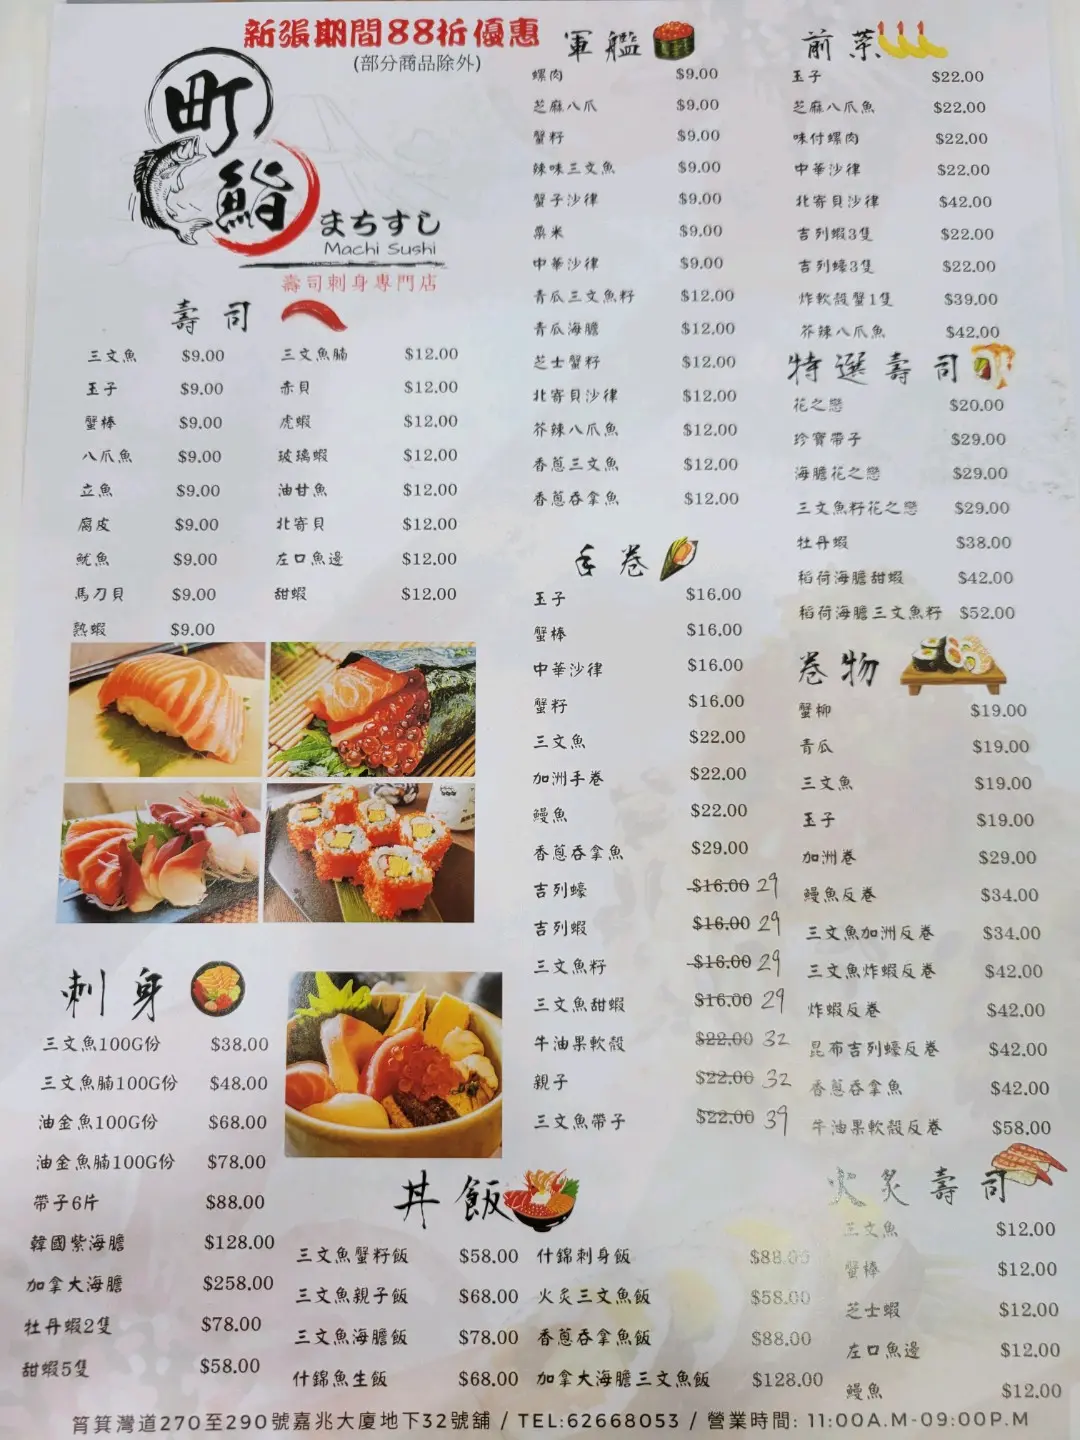 新張期間88折優惠
(部分商品除外)
町
鮨
まちすし
Machi Sushi
壽司刺身專門店
壽司
三文魚 $9.00 三文魚腩 $12.00
玉子 $9.00 赤貝 $12.00
蟹棒 $9.00 虎蝦 $12.00
八爪魚 $9.00 玻璃蝦 $12.00
立魚 $9.00 油甘魚 $12.00
腐皮 $9.00 北寄貝 $12.00
魷魚 $9.00 左口魚邊 $12.00
馬刀貝 $9.00 甜蝦 $12.00
熟蝦 $9.00
刺身
三文魚100G份 $38.00
三文魚腩100G份 $48.00
油金魚100G份 $68.00
油金魚腩100G份 $78.00
帶子6片 $88.00
韓國紫海膽 $128.00
加拿大海膽 $258.00
牡丹蝦2隻 $78.00
甜蝦5隻 $58.00
軍艦
螺肉 $9.00
芝麻八爪 $9.00
蟹籽 $9.00
辣味三文魚 $9.00
蟹子沙律 $9.00
粟米 $9.00
中華沙律 $9.00
青瓜三文魚籽 $12.00
青瓜海膽 $12.00
芝士蟹籽 $12.00
北寄貝沙律 $12.00
芥辣八爪魚 $12.00
香蔥三文魚 $12.00
香蔥吞拿魚 $12.00
手卷
玉子 $16.00
蟹棒 $16.00
中華沙律 $16.00
蟹籽 $16.00
三文魚 $22.00
加洲手卷 $22.00
鰻魚 $22.00
香蔥吞拿魚 $29.00
吉列蠔 $16.00 29
吉列蝦 $16.00 29
三文魚籽 $16.00 29
三文魚甜蝦 $16.00 29
牛油果軟殼 $22.00 32
親子 $22.00 32
三文魚帶子 $22.00 39
丼飯
三文魚蟹籽飯 $58.00 什錦刺身飯 $88.00
三文魚親子飯 $68.00 火炙三文魚飯 $58.00
三文魚海膽飯 $78.00 香蔥吞拿魚飯 $88.00
什錦魚生飯 $68.00 加拿大海膽三文魚飯 $128.00
前菜
玉子 $22.00
芝麻八爪魚 $22.00
味付螺肉 $22.00
中華沙律 $22.00
北寄貝沙律 $42.00
吉列蝦3隻 $22.00
吉列蠔3隻 $22.00
炸軟殼蟹1隻 $39.00
芥辣八爪魚 $42.00
特選壽司
花之戀 $20.00
珍寶帶子 $29.00
海膽花之戀 $29.00
三文魚籽花之戀 $29.00
牡丹蝦 $38.00
稻荷海膽甜蝦 $42.00
稻荷海膽三文魚籽 $52.00
卷物
蟹柳 $19.00
青瓜 $19.00
三文魚 $19.00
玉子 $19.00
加洲卷 $29.00
鰻魚反卷 $34.00
三文魚加洲反卷 $34.00
三文魚炸蝦反卷 $42.00
炸蝦反卷 $42.00
昆布吉列蠔反卷 $42.00
香蔥吞拿魚 $42.00
牛油果軟殼反卷 $58.00
火炙壽司
三文魚 $12.00
蟹棒 $12.00
芝士蝦 $12.00
左口魚邊 $12.00
鰻魚 $12.00
筲箕灣道270至290號嘉兆大廈地下32號舖 / TEL:62668053 / 營業時間: 11:00A.M-09:00P.M